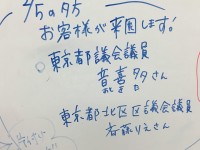 4/5の夕方
お客様が来園します!
東京都議会議員
音喜多さん
東京都北区区議会議員
斉藤りえさん